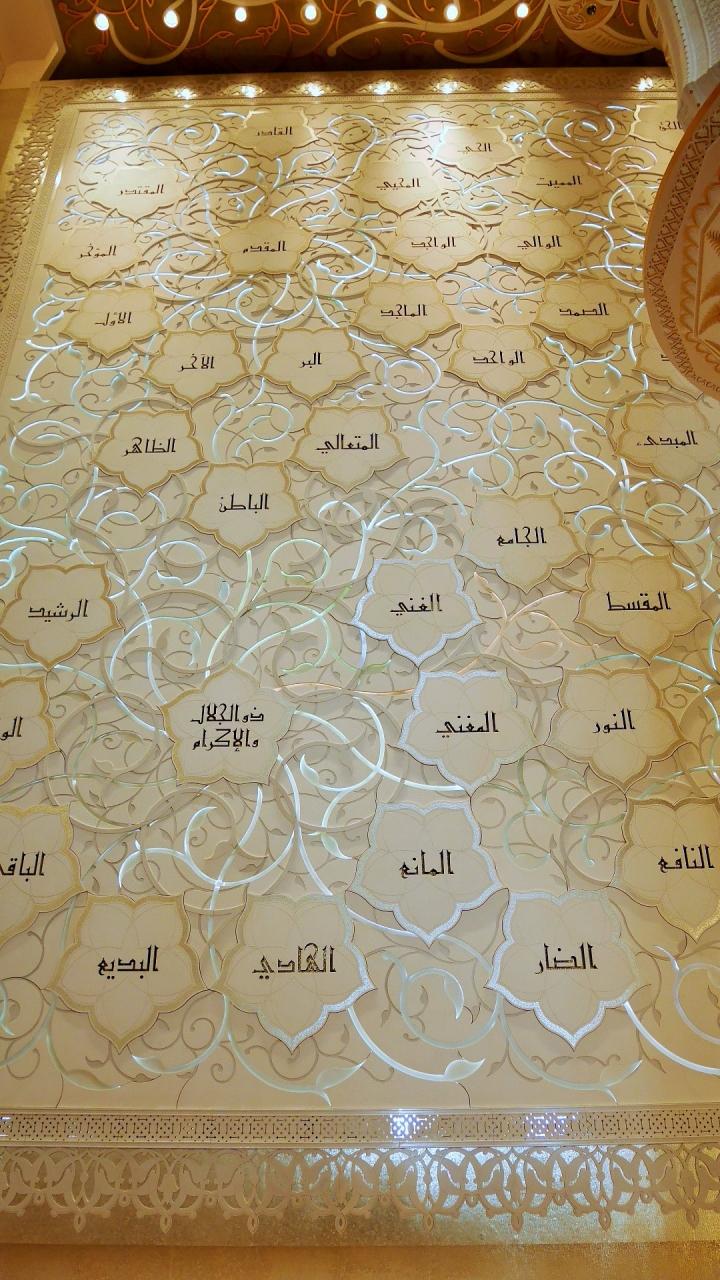 القادر
الحي
المميت
المحيي
المقتدر
الوالي
الواجد
المقدم
المؤخر
الصمد
الماجد
الأول
الواحد
البر
الآخر
المبدىء
المتعالي
الظاهر
الباطن
الجامع
المقسط
الغني
الرشيد
النور
المغني
ذو الجلال
والإكرام
النافع
المانع
الضار
الهادي
البديع